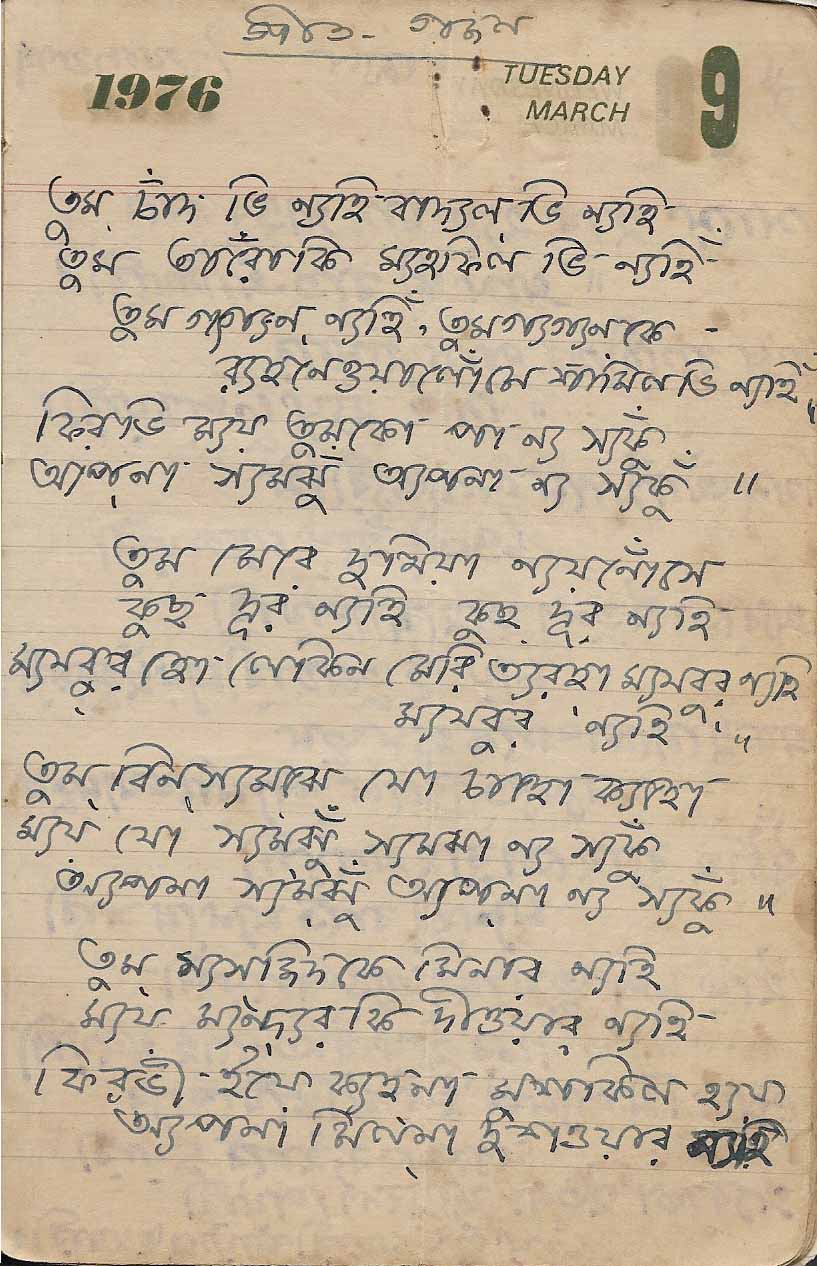 গীত - গজল
1976
TUESDAY
MARCH
9
তুম চাঁদ ভি ন্যাহি বাদ্যল ভি ন্যাহি
তুম তারোঁকি ম্যহফিল ভি ন্যাহিঁ
তুম ন্যাহিঁ, তুম গ্যগ্যন কে -
র‍্যহনেওয়ালোঁমে শামিল ভি ন্যাহিঁ"
ফিরভি ম্যয় তুমকো পা ন্য স্যকুঁ
অ্যপনা স্যমঝুঁ অ্যপনা ন্য স্যকুঁ ॥
তুম মেরে দুখিয়া ন্যয়নোঁসে
কুছ দূর ন্যাহি কুছ দূর ন্যাহি
ম্যযবুর হো লেকিন মেরি ত্যরহা ম্যযবুর ন্যাহি
ম্যযবুর ন্যাহি "
তুম বিন স্যমঝে যো চাহো ক্যহো
ম্যয় যো স্যমঝুঁ স্যমঝা ন্য স্যকুঁ
অ্যপনা স্যমঝুঁ অ্যপনা ন্য স্যকুঁ "
তুম ম্যসজিদকে মিনার ন্যাহি
ম্যয় ম্যন্দ্যির কি দীওয়ার ন্যাহি
ফিরভী ইয়ে ক্যহনা মুশকিল হ্যয়
অ্যপনা মিলনা দুশওয়ার ন্যাহি